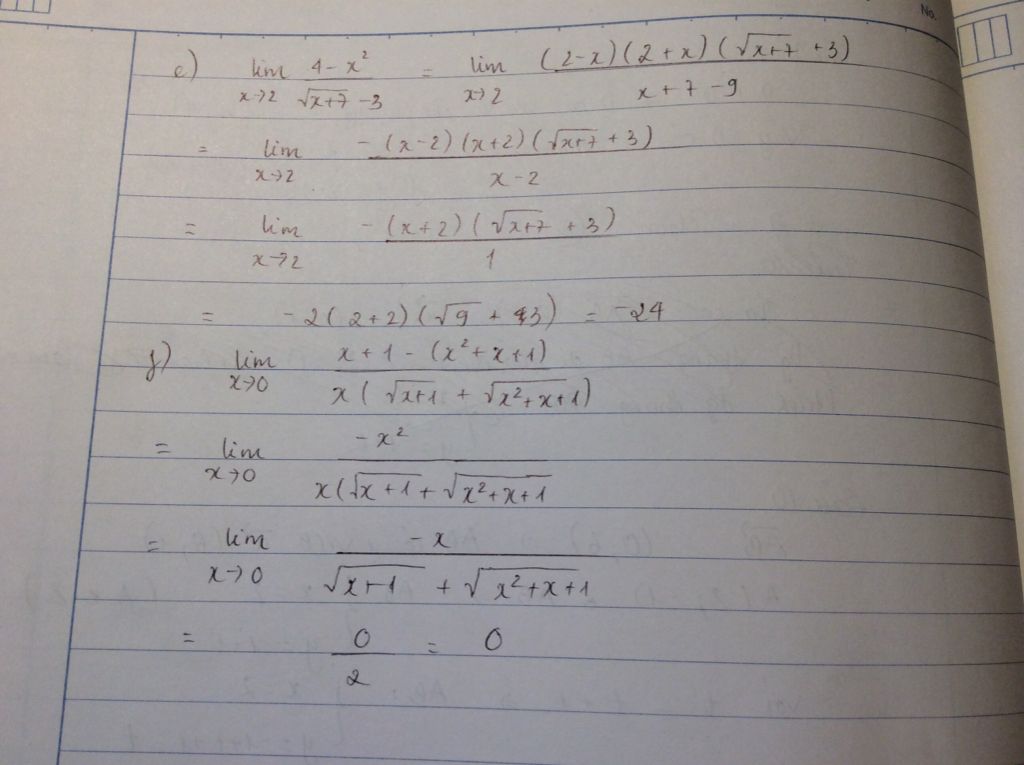 No.
e) lim x→2 (4 - x²)/(√(x+7) - 3) = lim x→2 ((2-x)(2+x)(√(x+7) + 3))/(x + 7 - 9)
= lim x→2 (-(x-2)(x+2)(√(x+7) + 3))/(x - 2)
= lim x→2 (-(x+2)(√(x+7) + 3))/1
= -2(2+2)(√9 + 3) = -24
f) lim x→0 (x + 1 - (x² + x + 1))/(x(√(x+1) + √(x²+x+1)))
= lim x→0 (-x²)/(x(√(x+1) + √(x²+x+1))
= lim x→0 (-x)/(√(x+1) + √(x²+x+1))
= 0/2 = 0